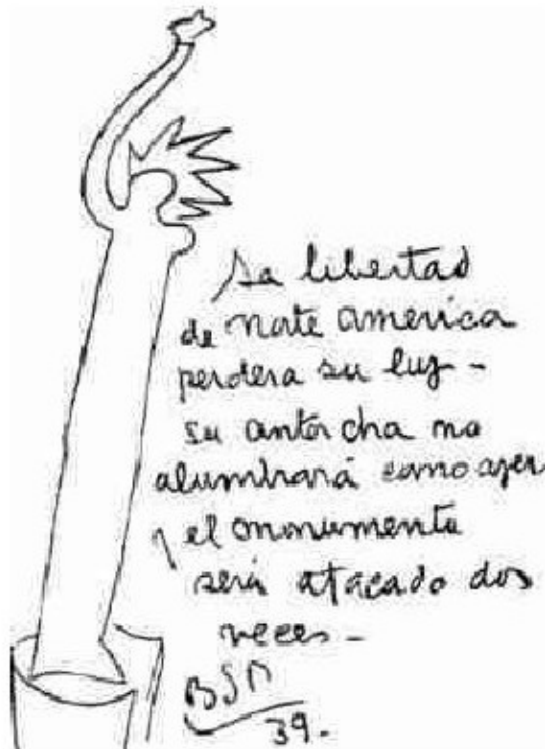 La libertad
de norte america
perdera su luz -
su antorcha no
alumbrará como ayer
y el monumento
será atacado dos
veces -
BSP
39.